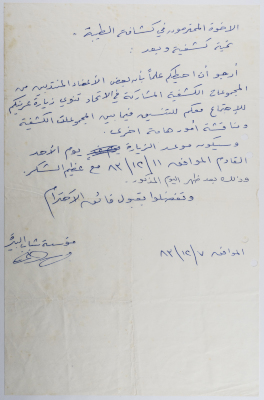 الاخوة المحترمون في كشافة الطيبة -
تحية كشفية وبعد :
أرجو أن احيطكم علماً بأن بعض الأعضاء المنتدبين من
المجموعات الكشفية المشاركة في الاتحاد تنوي زيارة
للإجتماع معكم للتنسيق فيما بين المجموعات الكشفية
ومناقشة أمور هامة اخرى .
وسيكون موعد الزيارة يوم الأحد
القادم الموافق ٨٣/١٢/١١ مع عظيم الشكر
وذلك بعد ظهر اليوم المذكور .
وتفضلوا بقبول فائق الاحترام
مؤسسة شباب البيرة
الموافق ٨٣/١٢/٧